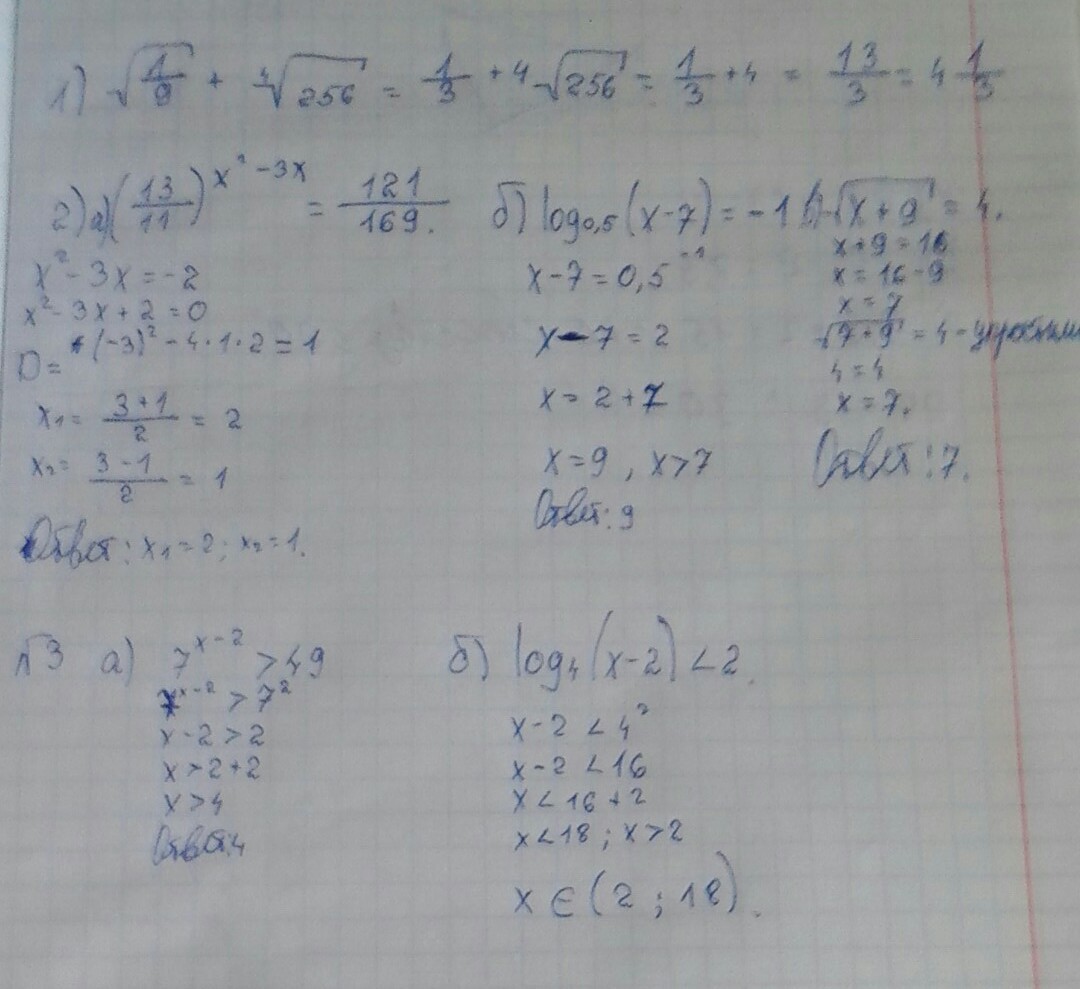 1) √(1/9) + ⁴√256 = 1/3 + 4√256 = 1/3 + 4 = 13/3 = 4 1/3
2) а) (13/11)^(x² - 3x) = 121/169.
x² - 3x = -2
x² - 3x + 2 = 0
D = (-3)² - 4·1·2 = 1
x₁ = (3+1)/2 = 2
x₂ = (3-1)/2 = 1
Ответ: x₁ = 2; x₂ = 1.
б) log₀,₅(x-7) = -1
x-7 = 0,5⁻¹
x-7 = 2
x = 2+7
x = 9, x > 7
Ответ: 9
в) √(x+9) = 4.
x+9 = 16
x = 16-9
x = 7
√(7+9) = 4 -
4 = 4
x = 7.
Ответ: 7.
№3 а) 7^(x-2) > 49
7^(x-2) > 7²
x-2 > 2
x > 2+2
x > 4
Ответ: 4
б) log₄(x-2) < 2.
x-2 < 4²
x-2 < 16
x < 16 + 2
x < 18; x > 2
x ∈ (2; 18).